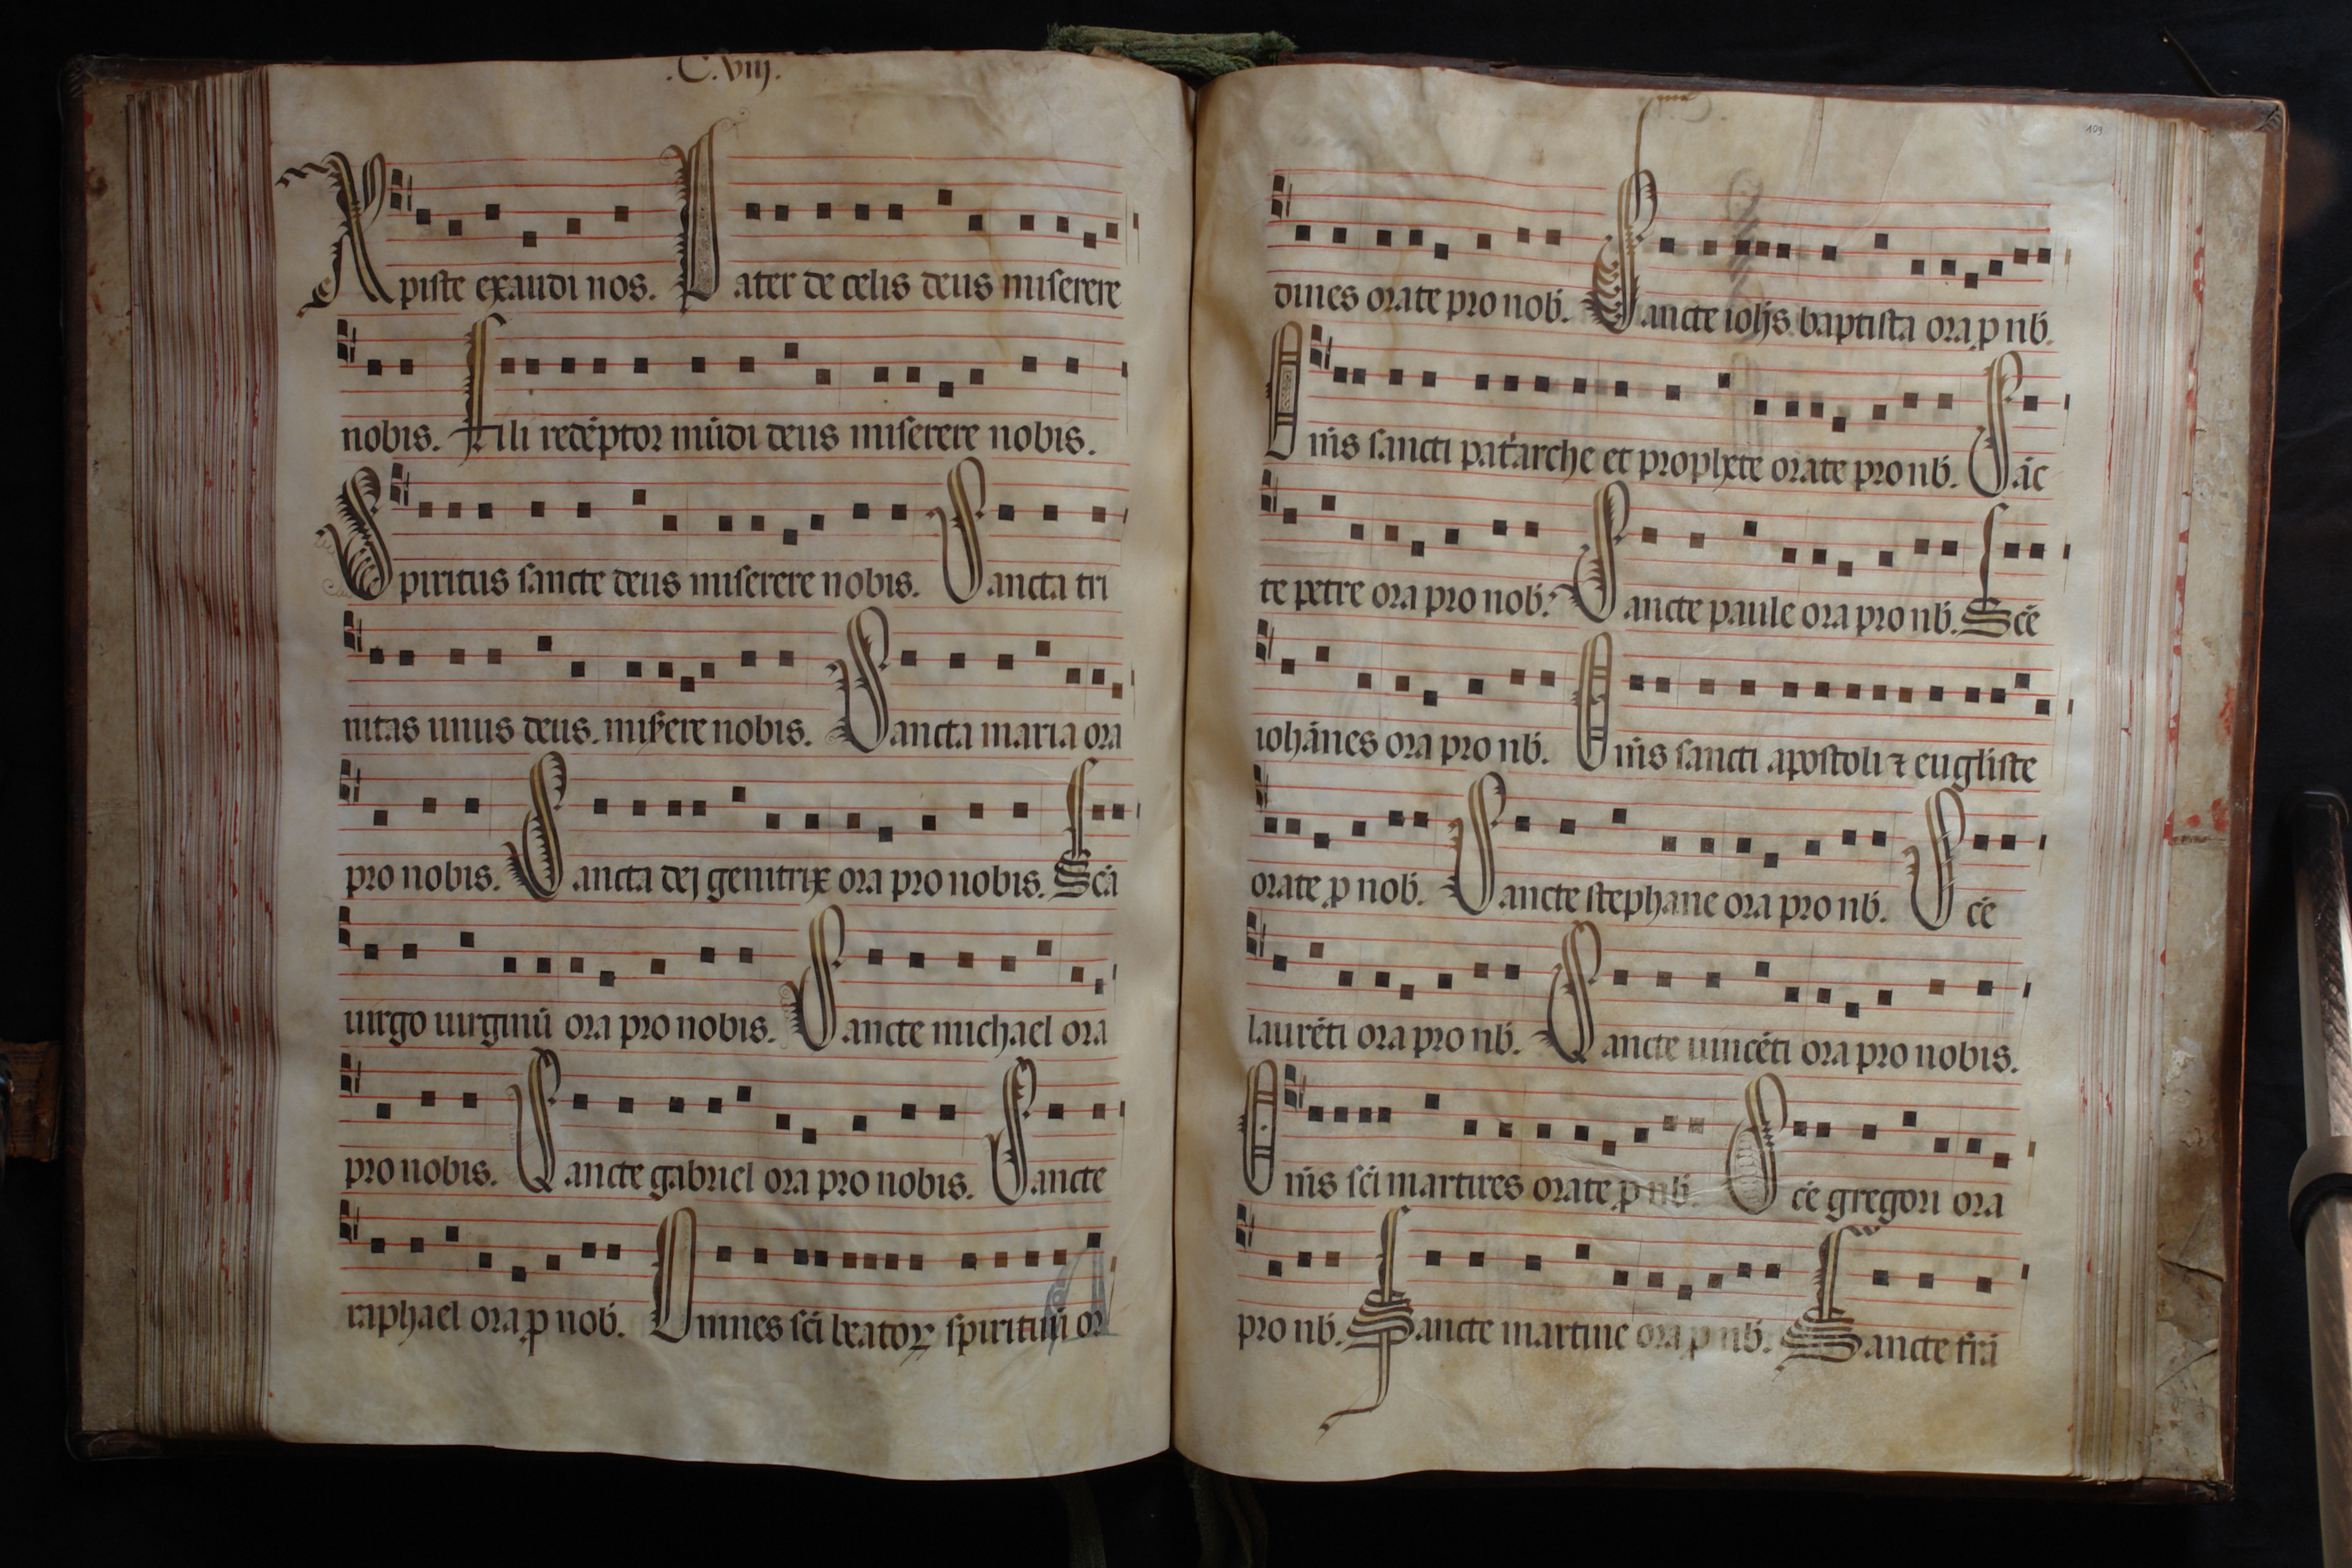 .C.viij.
Xpiste exaudi nos. Pater de celis deus miserere
nobis. Fili redēptor mūdi deus miserere nobis.
Spiritus sancte deus miserere nobis. Sancta tri
nitas unus deus. misere nobis. Sancta maria ora
pro nobis. Sancta dej genitrix ora pro nobis. Scā
uirgo uirginū ora pro nobis. Sancte michael ora
pro nobis. Sancte gabriel ora pro nobis. Sancte
raphael ora ꝓ nob̄. Omnes sc̄i beatoꝝ spirituū or
109
dines orate pro nob̄. Sancte ioh̄s baptista ora ꝓ nb̄.
Om̄s sancti pat̄arche et prophete orate pro nb̄. Sāc
te petre ora pro nob̄. Sancte paule ora pro nb̄. Scē
iohānes ora pro nb̄. Om̄s sancti apostoli ⁊ euḡliste
orate ꝓ nob̄. Sancte stephane ora pro nb̄. Scē
laurēti ora pro nb̄. Sancte uincēti ora pro nobis.
Om̄s sc̄i martires orate ꝓ nb̄. Scē gregori ora
pro nb̄. Sancte martine ora ꝓ nb̄. Sancte frā